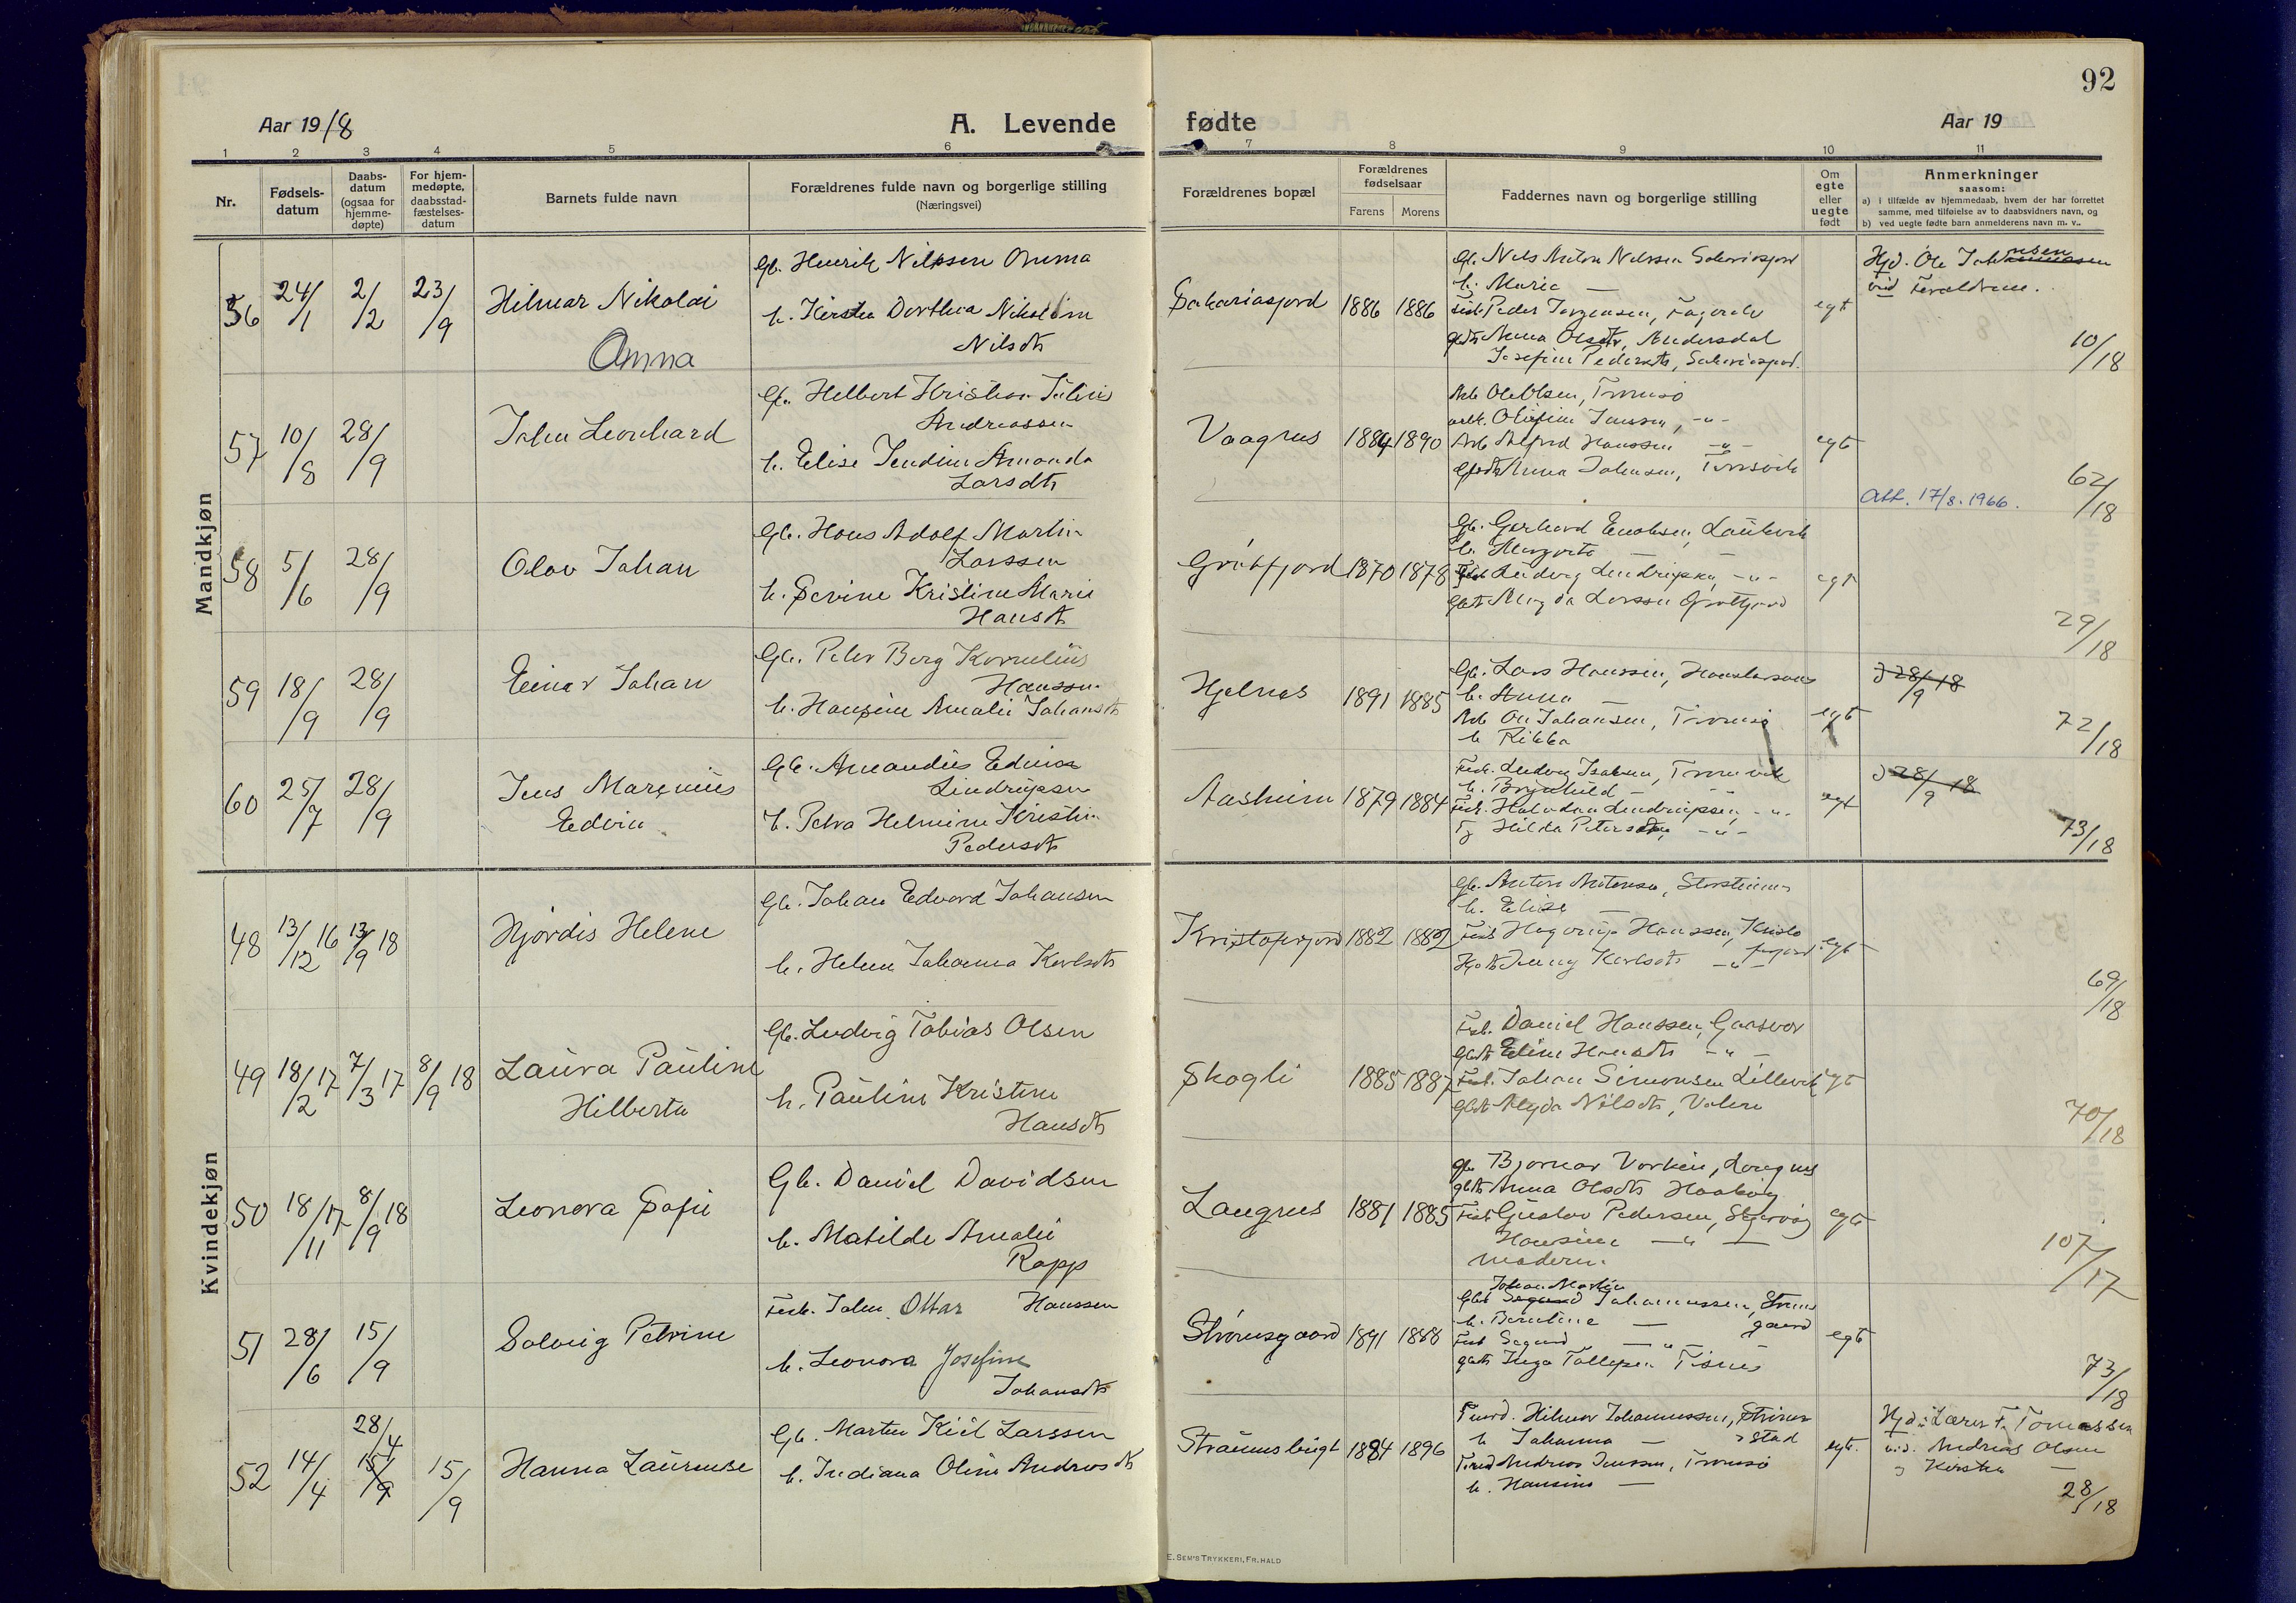 92
Aar 1918
A. Levende
fødte
Aar 19
1 2 3 4 5 6 7 8 9 10 11
Nr.
Fødsels-
datum
Daabs-
datum
(ogsaa for
hjemme-
døpte)
For hjem-
medøpte,
daabsstad-
fæstelses-
datum
Barnets fulde navn
Forældrenes fulde navn og borgerlige stilling
(Næringsvei)
Forældrenes bopæl
Forældrenes
fødselsaar
Farens Morens
Faddernes navn og borgerlige stilling
Om
egte
eller
uegte
født
Anmerkninger
saasom:
a) i tilfælde av hjemmedaab, hvem der har forrettet
samme, med tilføielse av to daabsvidners navn, og
b) ved uegte fødte barn anmelderens navn m. v..
Mandkjøn
56 24/1 2/2 23/9 Hilmar Nikolai
Omma
Gb. Henrik Nilssen Omma
h. Kirsten Dorthea Nikoline
Nilsdt
Sakariasjord 1886 1886
Gb. Nels Anton Nelssen Sakariasjord
h. Marie —
Fisk Peder Jørgensen, Fagerelv
gdt Anna Olsdtr, Andersdal
Josefine Pedersdt, Sakariasjord.
egt
Hjd. Ole Johnsen
ved Forældrene.
10/18
57 10/8 28/9 John Leonhard
Gb. Helbert Kristian Julius
Andreassen
h. Elise Jendine Amanda
Larsdt
Vaagnes 1884 1890
Arb Ole Olsen, Tromsø
Olufine Jensen, -"-
Arb Alfred Hanssen -"-
Anna Johansen,
egt
Att. 17/8. 1966.
62/18
58 5/6 28/9 Olav Johan
Gb. Hans Adolf Martin
Larssen
h. Sevine Kristine Marie
Hansdt
Grøtfjord 1870 1878
Gb. Gerhard Enoksen, Laukvik
h. Margrete — -
Fisk Ludvig Lindrupsen, -"-
Gbdt Magda Larssen Grøtfjord
egt
29/18
59 18/9 28/9 Einar Johan
Gb. Peter Berg Kornelius
Hanssen
h. Hansine Amalie Johansdt
Hjelnes 1891 1885
Gb. Lars Hanssen,
h. Anna —
Arb Ole Johansen, Tromsø
h Rikka
egt
28/9 18
72/18
60 25/7 28/9 Jens Margenius
Edvin
Gb. Amandus Edvin
Lindrupsen
h. Petra Helmine Kristine
Pedersdt
Aasheim 1879 1884
Fisk. Ludvig Isaksen,
h. Brynhild - -
Fisk. Halvdan Lindrupsen, -"-
Tj Hilda Petersdt, -"-
egt
28/9 18
73/18
Kvindekjøn
48 13/12 16 13/9 18 Hjørdis Helene
Gb. Johan Edvard Johansen
h. Helene Johanna Karlsdt
Kristoferjord 1882 1882
Gb. Anton Antonsen, Storsteinnes
h. Elise —
Fisk Hagerup Hanssen, Kristo
ferjord
Jenny Karlsdt -"-
egt
69/18
49 18/2 17 7/3 17 8/9 18 Laura Pauline
Hilberta
Gb. Ludvig Tobias Olsen
h. Pauline Kristine
Hansdt
Skogli 1885 1887
Fisk. Daniel Hanssen, Gaasvær
Gbdt Eline Hansdt -"-
Fisk. Johan Simonsen Lillevik
Gbdt Alyda Nilsdt,
egt
70/18
50 18/11 17 8/9 18 Leonora Sofie
Gb. Daniel Davidsen
h. Matilde Amalie
Rapp
Langnes 1881 1885
Gb. Bjornar Vorkin, Langnes
gbdt Anna Olsdt
Fisk Gustav Pedersen, Skjervøy
Hansine — " —
Moderen.
egt
107/17
51 28/6 15/9 Solveig Petrine
Fisk. John Ottar Hanssen
h. Leonora Josefine
Johansdt
Strømsgaard 1891 1888
Johan Martin
Gbs Sigurd Johannessen, Strøms
gaard
h. Berntine —
Fisk Sigurd — " —
gbdt Inga Tollefsen Tisnes
egt
73/18
52 14/4 28/4 15/9 15/9 Hanna Laurense
Gb. Martin Kiil Larssen
h. Indiana Oline Andreasdt
Straumsbugt 1884 1896
Hilmar Johannessen, Strøm
stad
h Johanna —
Andreas Jenssen, Tromsø
h. Hansine —
egt.
Hjd: Lærer F. Tomassen
vid. Andreas Olsen
Kirsten —
28/18
E. SEM'S TRYKKERI, FR. HALD